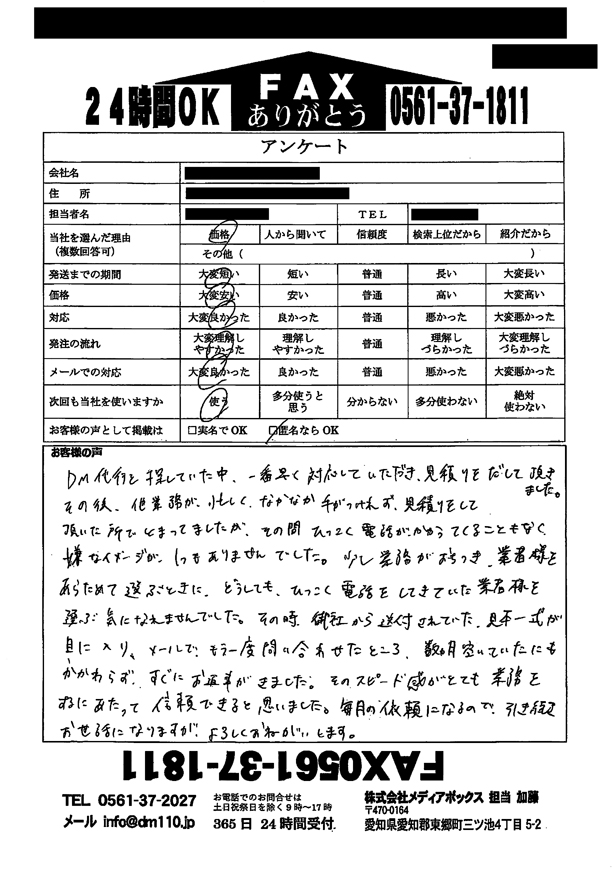 FAX
24時間OK ありがとう 0561-37-1811
アンケート
会社名
住　所
担当者名 TEL
当社を選んだ理由（複数回答可） 価格 人から聞いて 信頼度 検索上位だから 紹介だから
その他（ ）
発送までの期間 大変短い 短い 普通 長い 大変長い
価格 大変安い 安い 普通 高い 大変高い
対応 大変良かった 良かった 普通 悪かった 大変悪かった
発注の流れ 大変理解しやすかった 理解しやすかった 普通 理解しづらかった 大変理解しづらかった
メールでの対応 大変良かった 良かった 普通 悪かった 大変悪かった
次回も当社を使いますか 使う 多分使うと思う 分からない 多分使わない 絶対使わない
お客様の声として掲載は □実名でOK □匿名ならOK
お客様の声
DM代行を探していた中、一番早く対応していただき、見積りをだして頂きました。
その後、他業務が、忙しく、なかなか手がつけれず、見積りをして
頂いた所でとまってましたが、その間ひつこく電話がかかってくることもなく
嫌なイメージが、1つもありませんでした。少し業務がおちつき、業者様を
あらためて選ぶときに、どうしても、ひつこく電話をしてきていた業者様を
選ぶ気になれませんでした。その時、御社から送付されていた、見本一式が
目に入り、メールで、もう一度問い合わせたところ、数ヶ月空いていたにも
かかわらず、すぐにお返事がきました。そのスピード感がとても業務を
するにあたって信頼できると思いました。毎月の依頼になるので、引き続き
お世話になりますが、よろしくおねがいします。
FAX0561-37-1811
TEL 0561-37-2027 お電話でのお問合せは 株式会社メディアボックス 担当 加藤
土日祝祭日を除く9〜17時 〒470-0164
メール info@dm110.jp 365日24時間受付 愛知県愛知郡東郷町三ツ池4丁目5-2